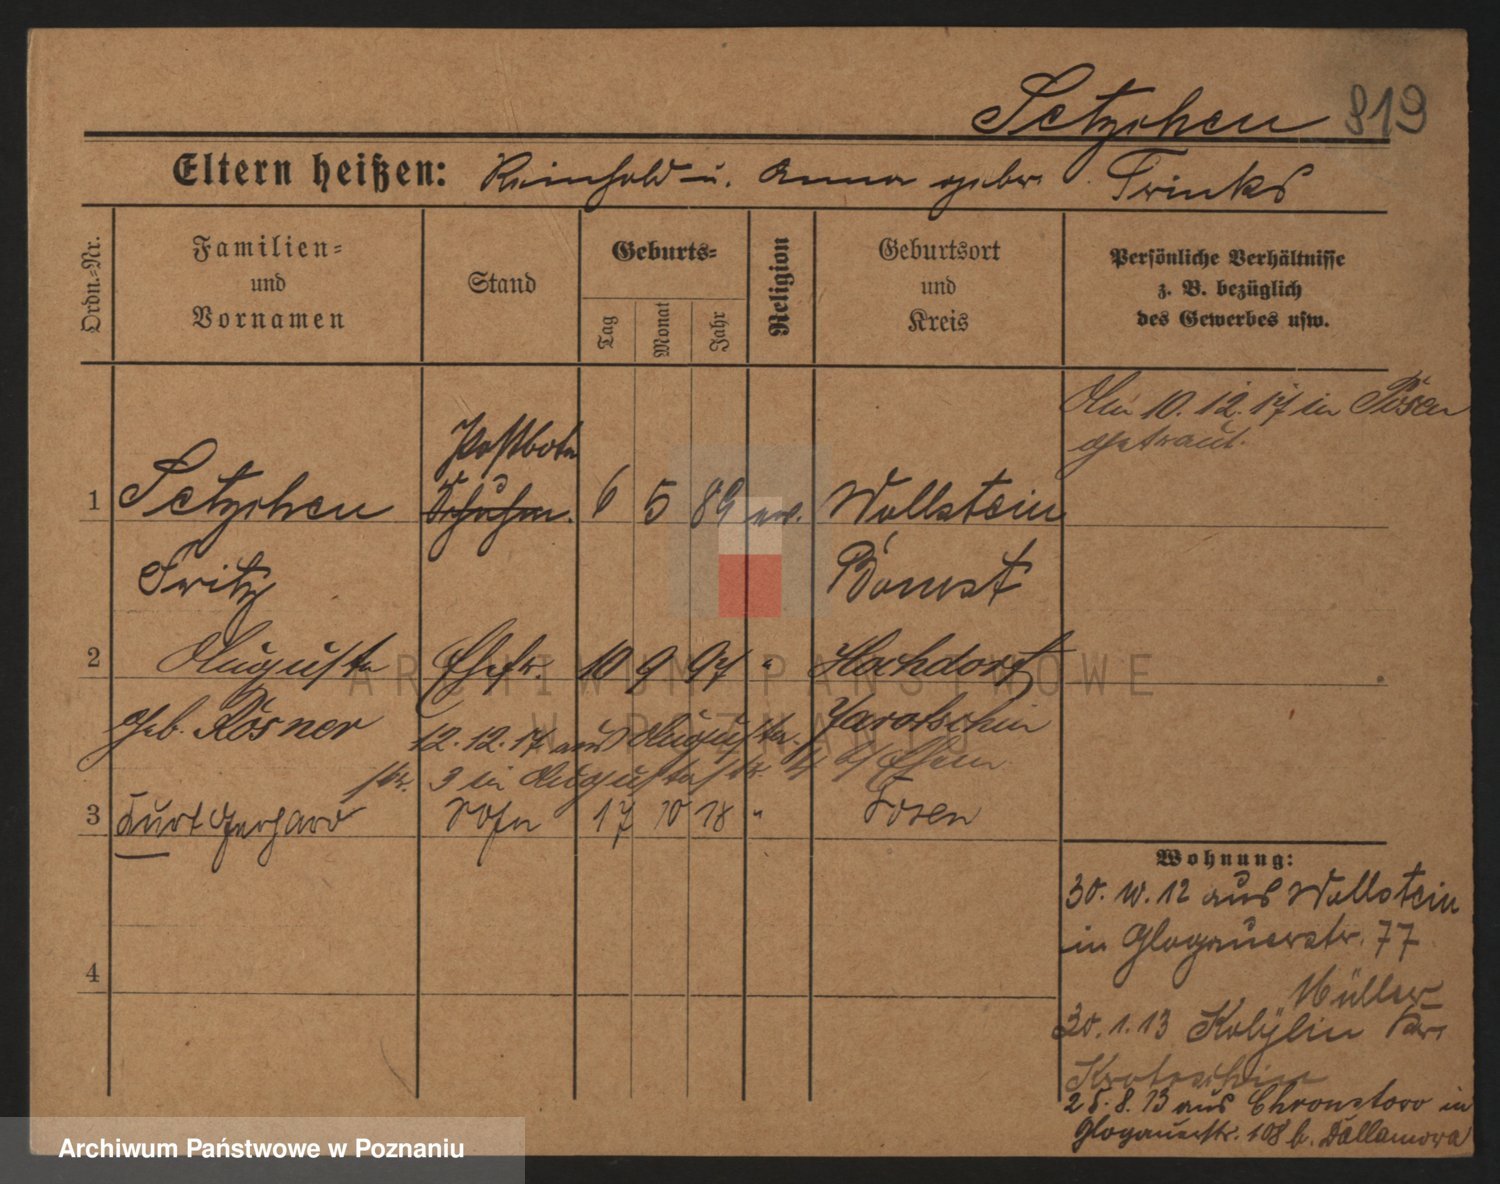 Setzchen 819
Eltern heißen: Reinhold u. Anna geb. Trinks
Ordn.-Nr.
Familien-
und
Vornamen
Stand
Geburts-
Tag
Monat
Jahr
Religion
Geburtsort
und
Kreis
Persönliche Verhältnisse
z. B. bezüglich
des Gewerbes usw.
Am 10.12.17 in Posen
getraut.
Postbote
1 Setzchen Schuhm. 6 5 89 ev. Wollstein
Fritz Bomst
2 Auguste Ehefr. 10 9 97 " Hochdorf
geb. Rösner Jarotschin
12.12.17 aus Augusta-
str. 3 in Augustastr. 4 b/Ehem.
3 Kurt Gerhard Sohn 17 10 18 " Posen
4
Wohnung:
30. 10. 12 aus Wollstein
in Glogauerstr. 77
Müller
30.1.13 Kobylin Kr.
Krotoschin
25.8.13 aus Chronstowo in
Glogauerstr. 108 b.
ARCHIWUM PAŃSTWOWE
W POZNANIU
Archiwum Państwowe w Poznaniu